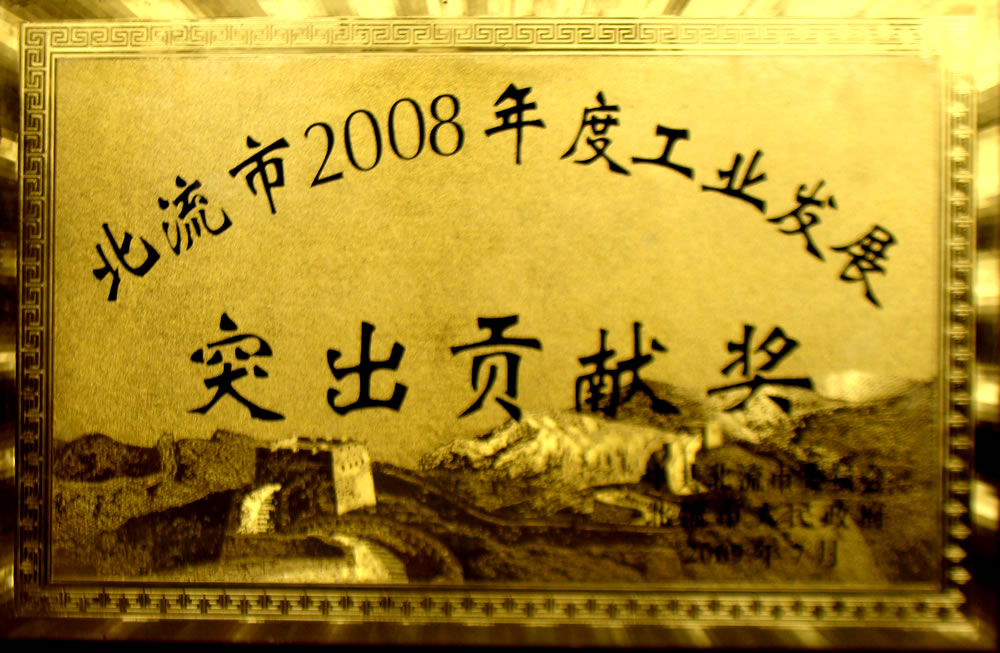 北流市2008年度工业发展
突出贡献奖
中共北流市委员会
北流市人民政府
2009年7月